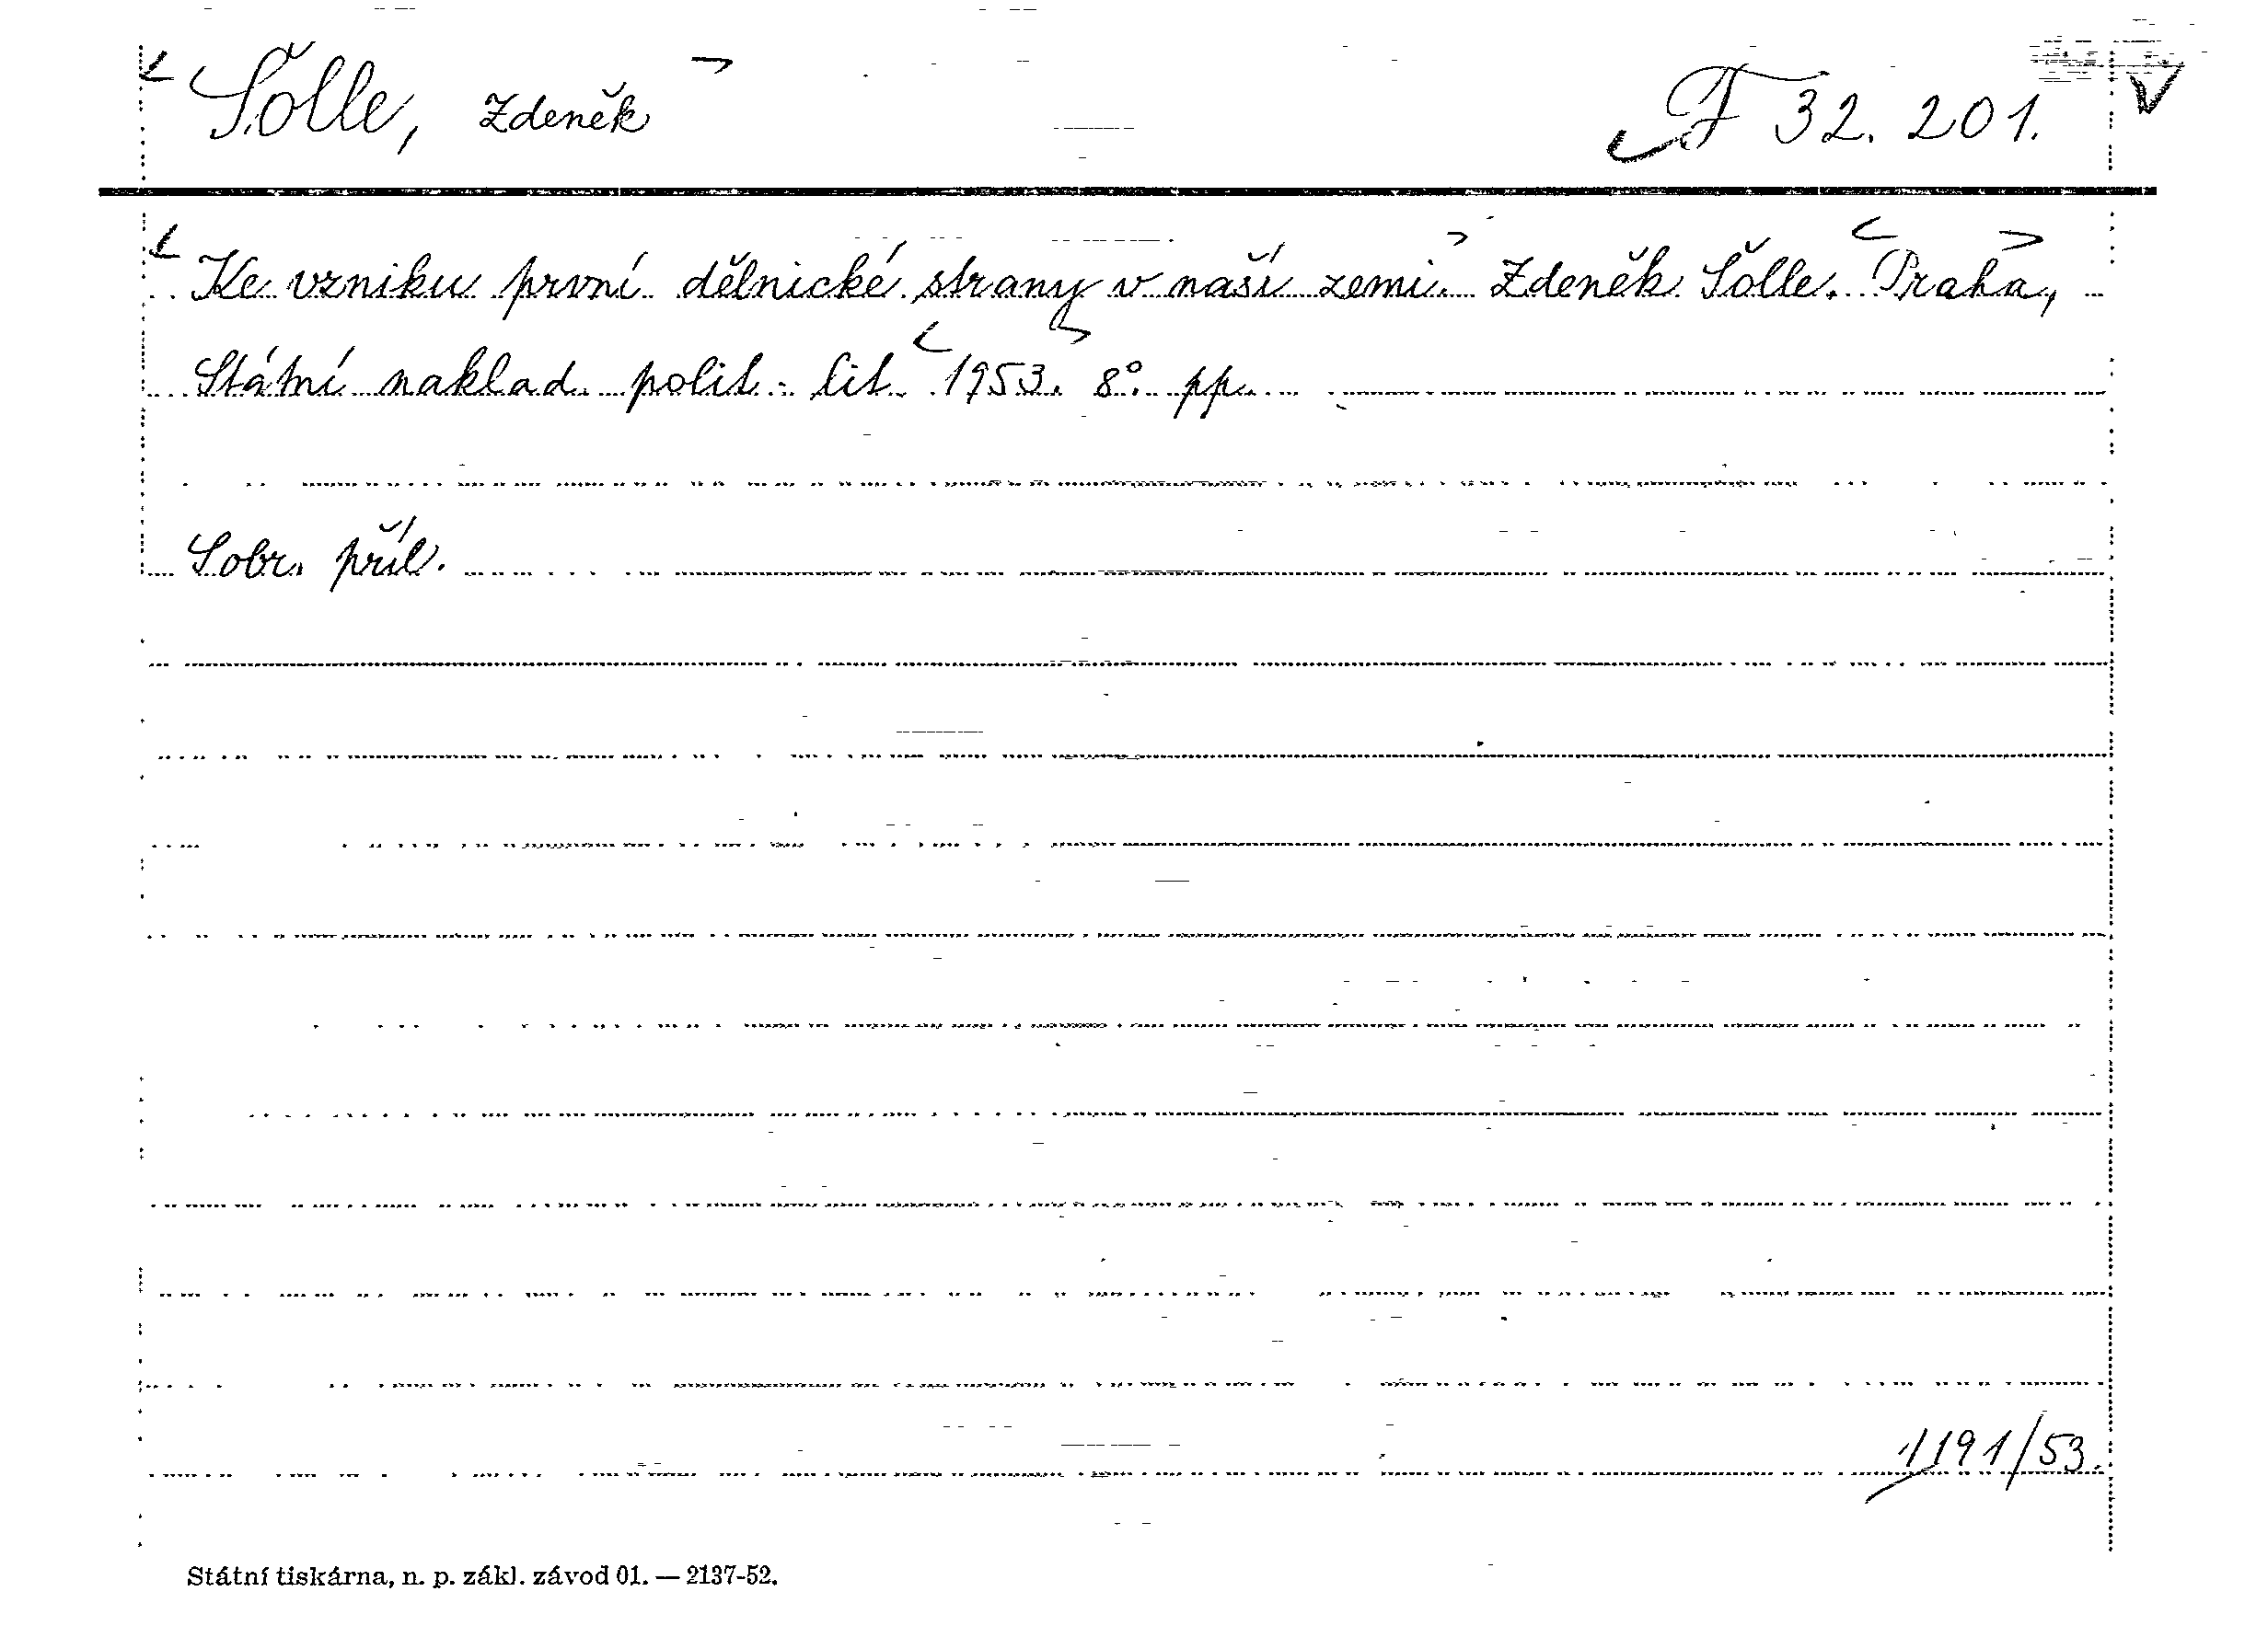 Šolle, Zdeněk F 32.201.
Ke vzniku první dělnické strany v naší zemi. Zdeněk Šolle. Praha,
Státní naklad. polit. lit. 1953. 8°. pp.
Sobr. příl.
1191/53.
Státní tiskárna, n. p. zákl. závod 01. — 2137-52.